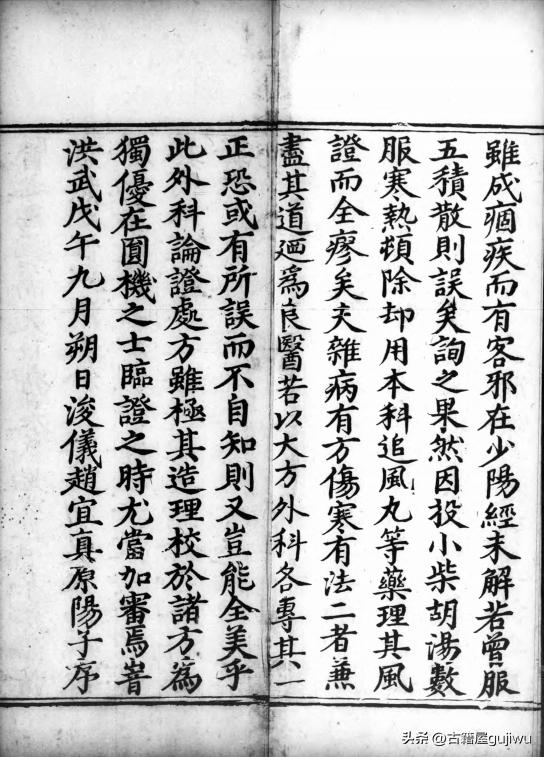 雖成痼疾而有客邪在少陽經未解若曾服
五積散則誤矣詢之果然因投小柴胡湯數
服寒熱頓除却用本科追風丸等藥理其風
證而全瘳矣夫雜病有方傷寒有法二者兼
盡其道廼爲良醫若以大方外科各專其一
正恐或有所誤而不自知則又豈能全美乎
此外科論證處方雖極其造理校於諸方爲
獨優在圓機之士臨證之時尤當加審焉旹
洪武戊午九月朔日浚儀趙宜真原陽子序
头条 @古籍屋gujiwu